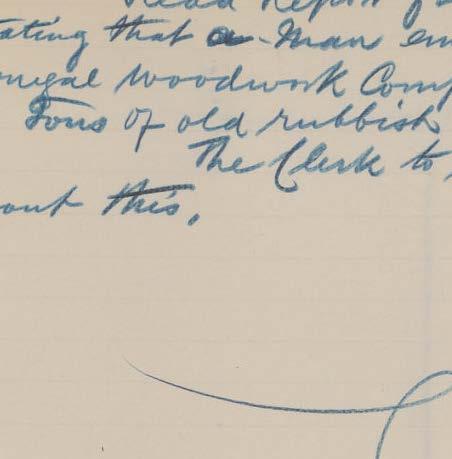 Read Report of
ating that a man em
onegal Woodwork Comp
Tons of old rubbish
The Clerk to
out this.